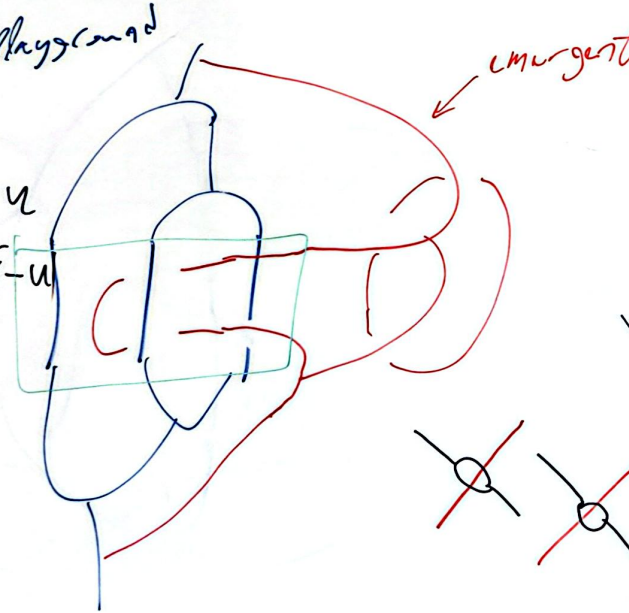 Playground
emergent
u
-u